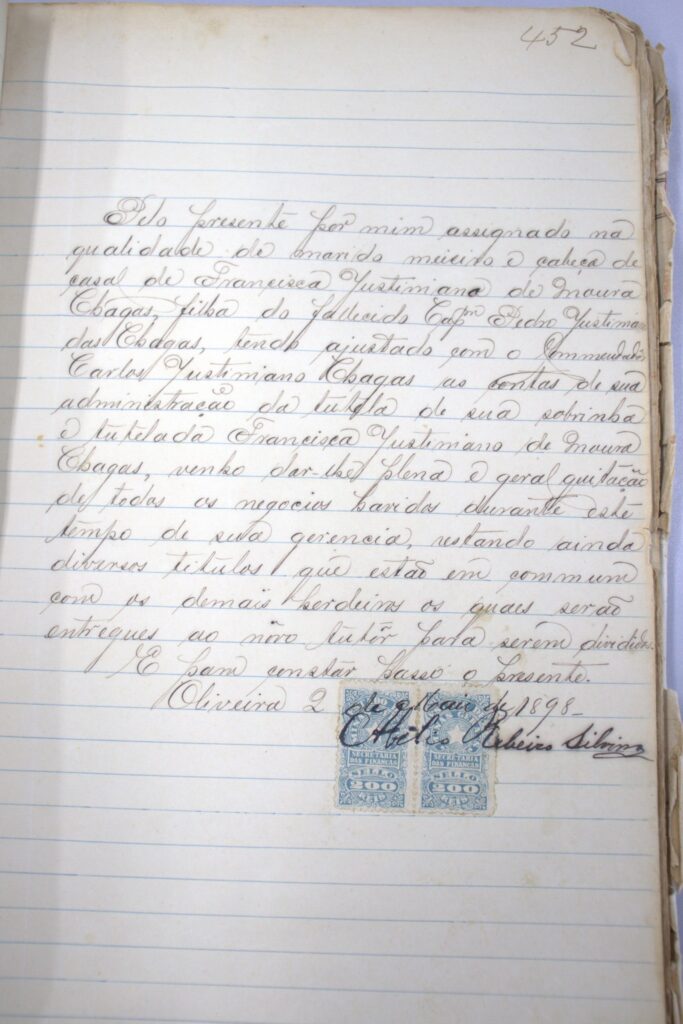 452
Pelo presente por mim assignado na
qualidade de marido meieiro e cabeça de
casal de Francisca Justiniana de Moura
Chagas, filha do fallecido Capm Pedro Justiniano
das Chagas, tendo ajustado com o Commendador
Carlos Justiniano Chagas as contas de sua
administração da tutela de sua sobrinha
e tutelada Francisca Justiniano de Moura
Chagas, venho dar-lhe plena e geral quitação
de todos os negocios havidos durante este
tempo de sua gerencia, restando ainda
diversos titulos que estão em commum
com os demais herdeiros os quaes serão
entregues ao novo tutor para serem divididos.
E para constar passo o presente.
Oliveira 2 de Maio de 1898-
Ribeiro Silvino
SECRETARIA DAS FINANÇAS SECRETARIA DAS FINANÇAS
SELLO SELLO
200 200
REIS REIS